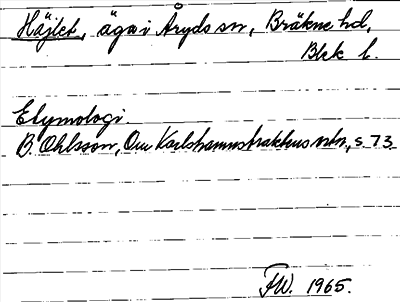 Häjlet, äga i Åryds sn, Bräkne hd,
Blek l.
Etymologi.
B. Ohlsson, Om Karlshamnstraktens ortn., s. 73
FW. 1965.